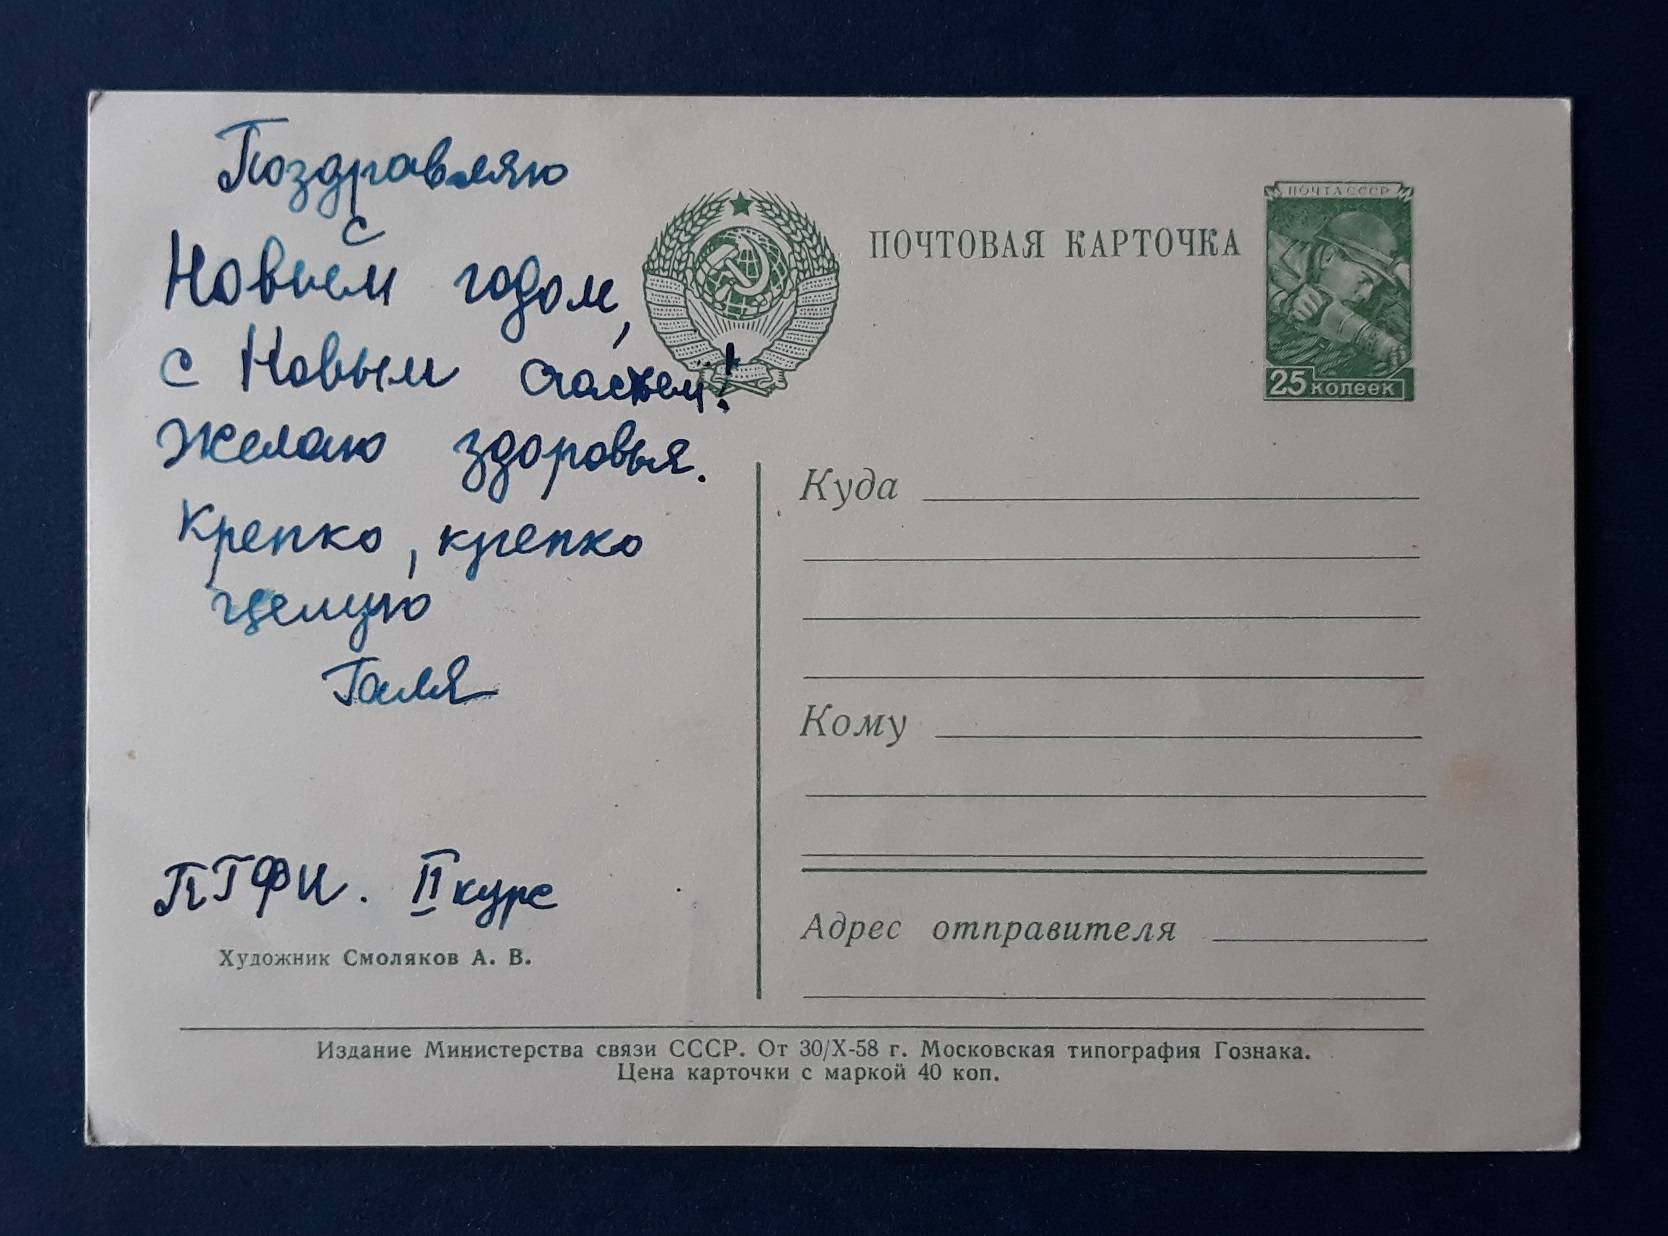 Поздравляю
с
Новым годом,
с Новым счастьем!
Желаю здоровья.
Крепко, крепко
целую
Галя
ПГФИ. II курс
Художник Смоляков А. В.
ПОЧТОВАЯ КАРТОЧКА
ПОЧТА СССР
25 копеек
Куда
Кому
Адрес отправителя
Издание Министерства связи СССР. От 30/X-58 г. Московская типография Гознака.
Цена карточки с маркой 40 коп.